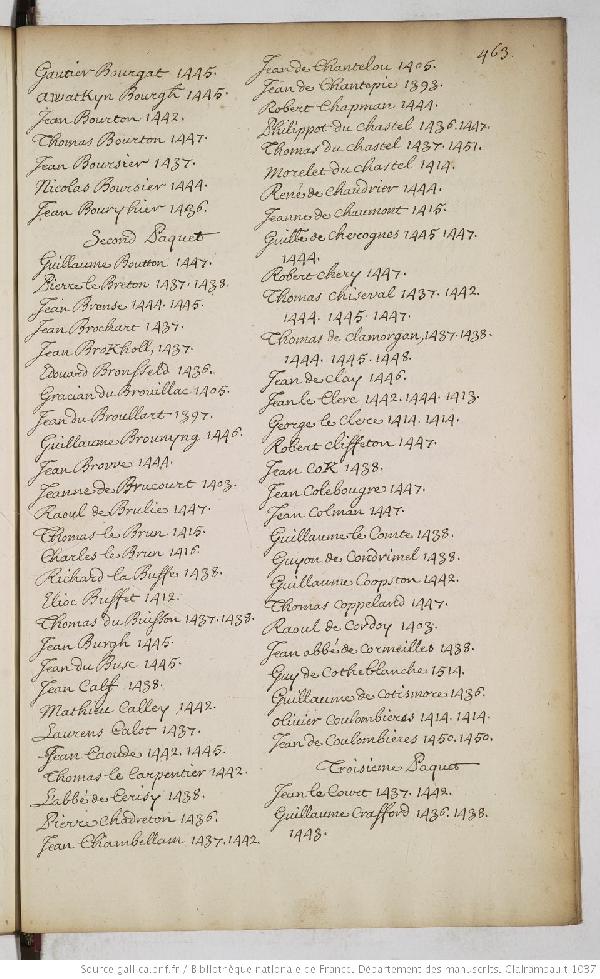 463.
Gautier Bourgat 1445.
awatkyn Bourgh 1445.
Jean Bourton 1442.
Thomas Bourton 1447.
Jean Boursier 1437.
Nicolas Boursier 1444.
Jean Bourghier 1436.
Second Paquet
Guillaume Boutton 1447.
Pierre le Breton 1437. 1438.
Jean Brense 1444. 1445.
Jean Brochart 1437.
Jean BroKholl, 1437.
Edouard Bromfield 1436.
Gracian du Brouillac 1405.
Jean du Broullart 1397.
Guillaume Brounyng 1446.
Jean Brovve 1444.
Jeanne de Brucourt 1403.
Raoul de Brulie 1447.
Thomas le Brun 1415.
Charles le Brun 1415.
Richard la Buffe 1438.
Elioc Buffet 1412.
Thomas du Buisson 1437. 1438.
Jean Burgh 1445.
Jean du Busc 1445.
Jean Calf 1438.
Mathieu Calley 1442.
Laurens Calot 1437.
Jean Caoude 1442. 1445.
Thomas le Carpentier 1442.
L'abbé de Cerisy 1438.
Pierre Chadreton 1436.
Jean Chambellam 1437. 1442.
Jean de Chantelou 1405.
Jean de Chantepie 1393.
Robert Chapman 1444.
Philippot du chastel 1436. 1447.
Thomas du chastel 1437. 1451.
Morelet du chastel 1414.
René de chaudrier 1444.
Jeanne de chaumont 1415.
Guille de cherognes 1445 1447.
1444.
Robert chery 1447.
Thomas chiseval 1437. 1442.
1444. 1445. 1447.
Thomas de clamorgan, 1437. 1438.
1444. 1445. 1448.
Jean de Clay 1446.
Jean le Clerc 1442. 1444. 1413.
George le clerc 1414. 1414.
Robert cliffeton 1447.
Jean CoK 1438.
Jean Colebougre 1447.
Jean Colman 1447.
Guillaume le Comte 1438.
Guyon de Condrimel 1438.
Guillaume Coopston 1442.
Thomas Coppeland 1447.
Raoul de Cordoy 1403.
Jean abbé de Cormeilles 1438.
Guy de Cotheblanche 1514.
Guillaume de Cotismore 1436.
olivier Coulombieres 1414. 1414.
Jean de Coulombieres 1450. 1450.
Troisieme Paquet
Jean le Court 1437. 1442.
Guillaume Crafford 1436. 1438.
1443.
Source gallica.bnf.fr / Bibliothèque nationale de France. Département des manuscrits. Clairambault 1037